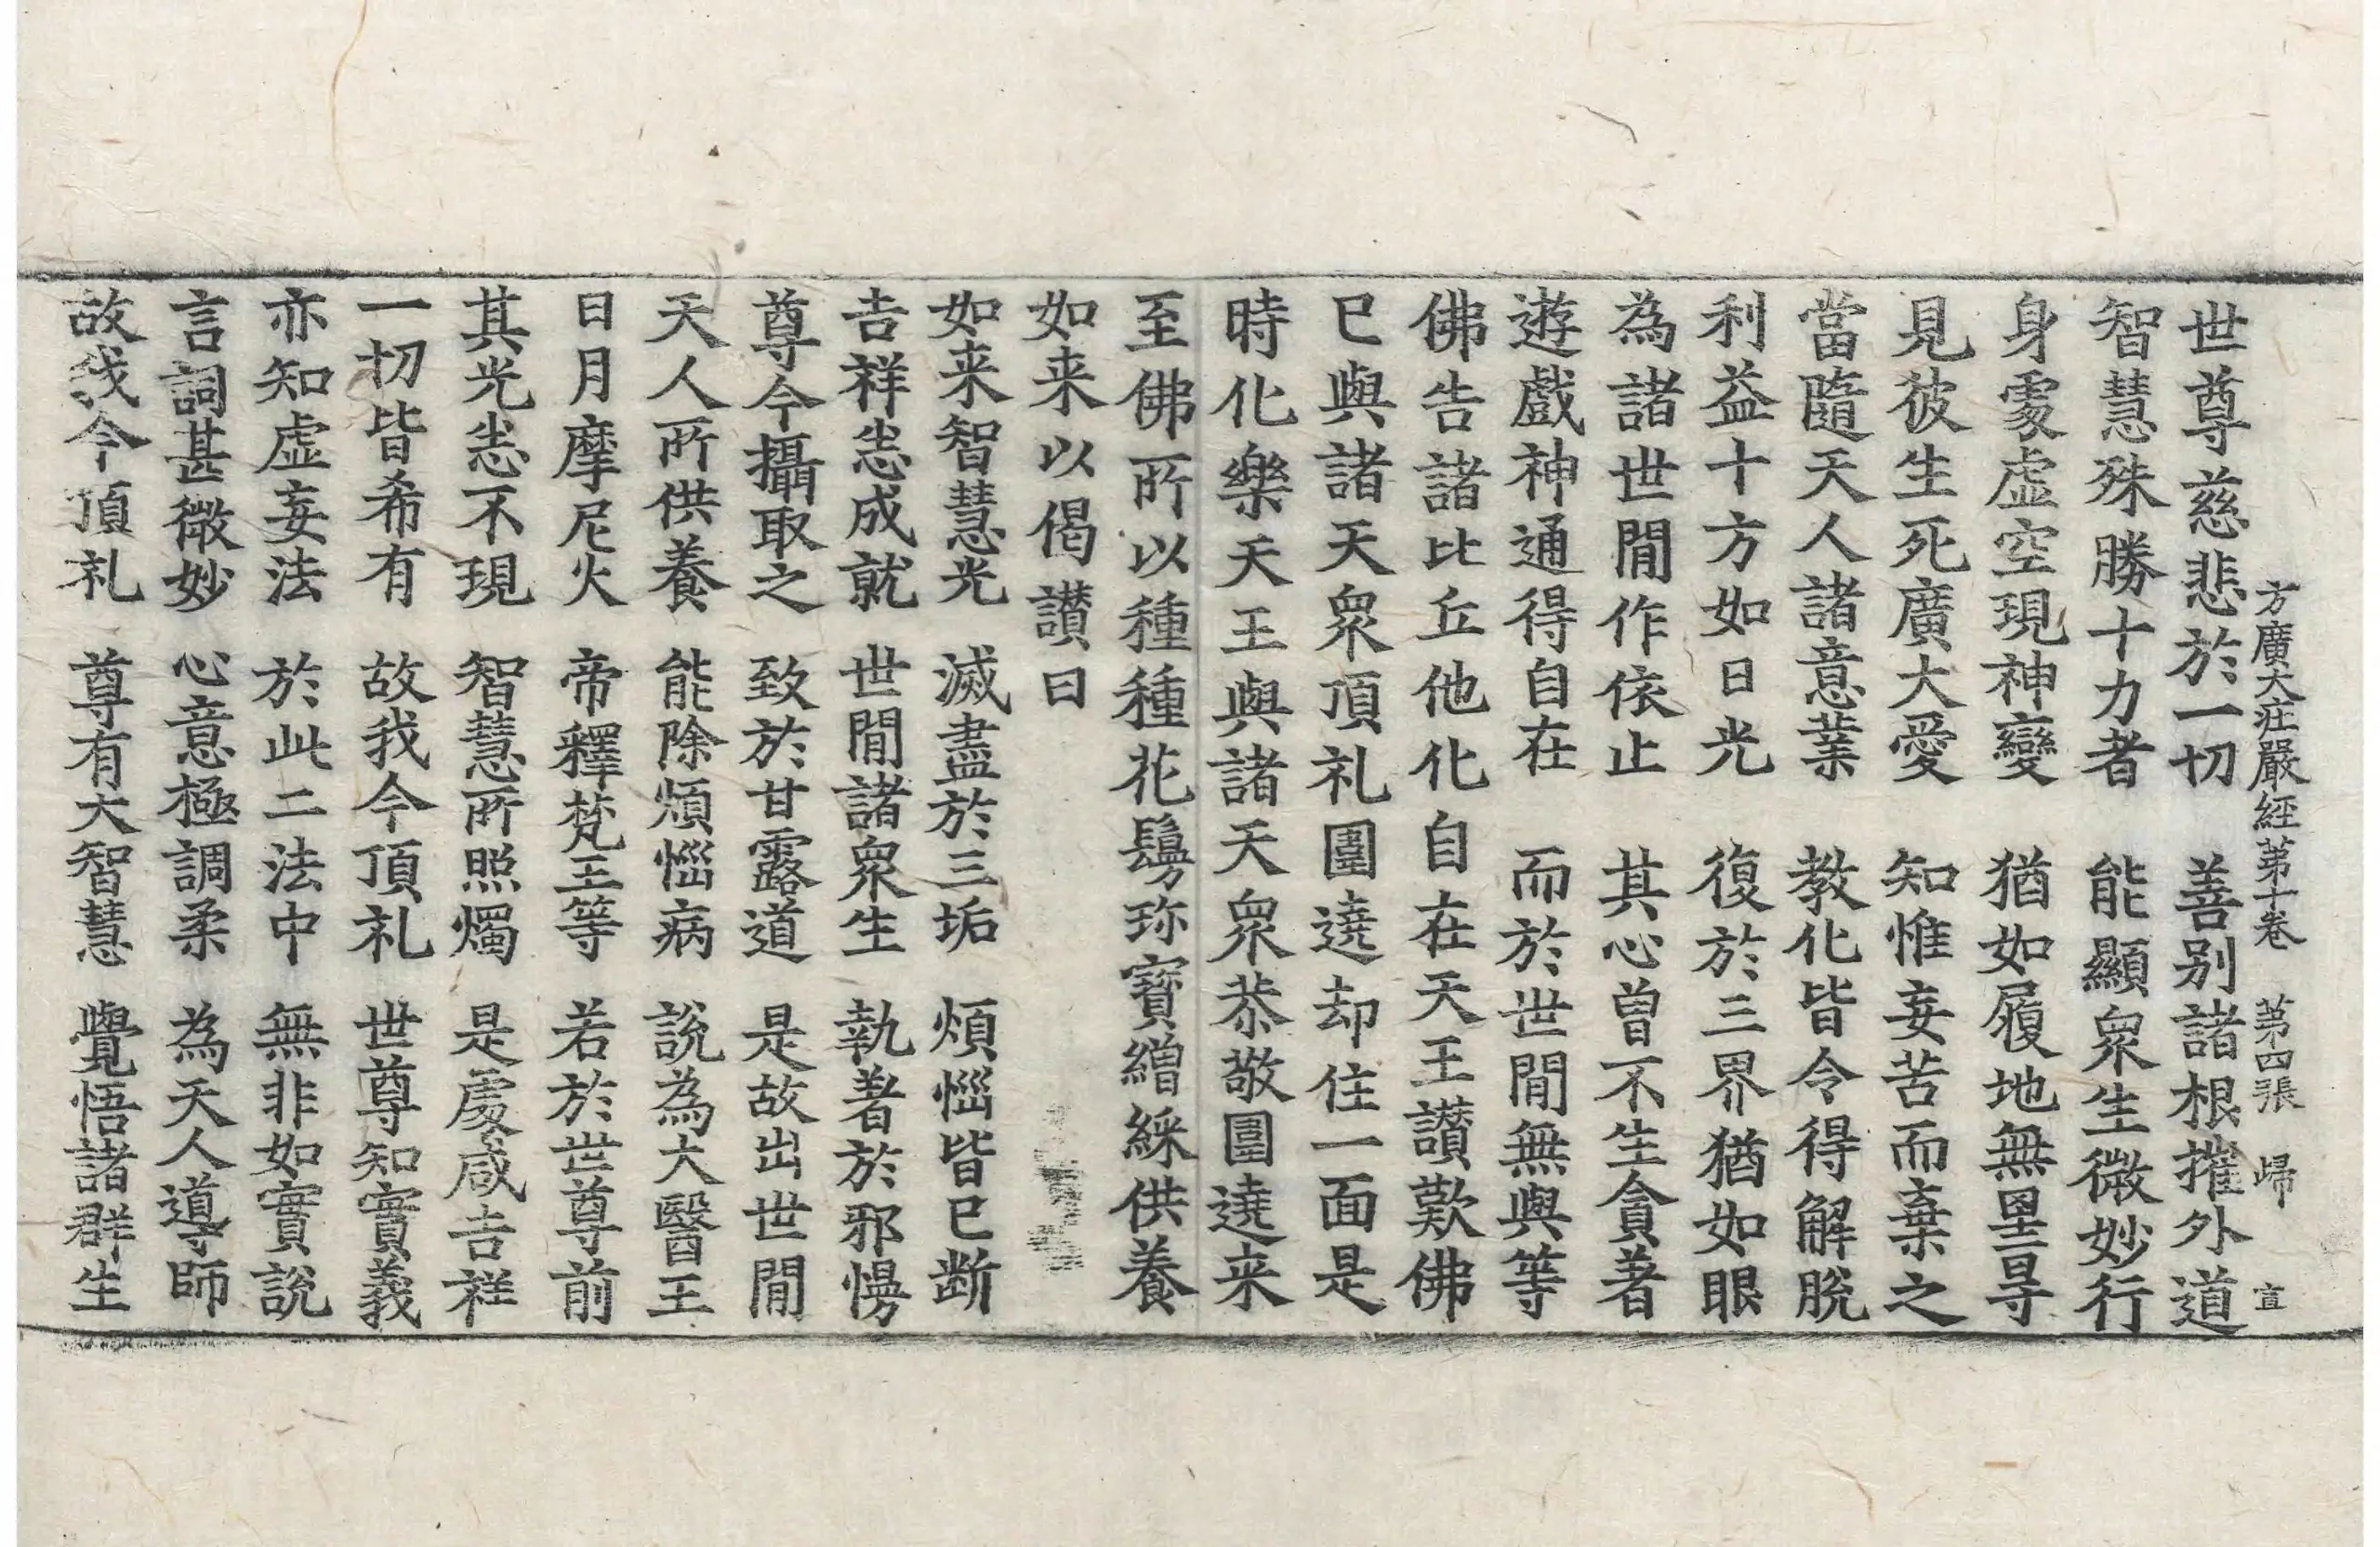 方廣大荘嚴經第十卷　第四張　歸　宣
世尊慈悲於一切　善別諸根摧外道
智慧殊勝十力者　能顯衆生微妙行
身處虛空現神變　猶如履地無罣㝵
見彼生死廣大愛　知惟妄苦而棄之
當隨天人諸意業　教化皆令得解脫
利益十方如日光　復於三界猶如眼
為諸世間作依止　其心曽不生貪著
遊戲神通得自在　而於世間無與等
佛告諸比丘他化自在天王讃歎佛
已與諸天衆頂礼圍遶却住一面是
時化樂天王與諸天衆恭敬圍遶来
至佛所以種種花鬘珎寶繒綵供養
如来以偈讃曰
如来智慧光　滅盡於三垢　煩惱皆已断
吉祥悉成就　世間諸衆生　執著於邪慢
尊今攝取之　致於甘露道　是故出世間
天人所供養　能除煩惱病　說為大醫王
日月摩尼火　帝釋梵王等　若於世尊前
其光悉不現　智慧所照燭　是處咸吉祥
一切皆希有　故我今頂礼　世尊知實義
亦知虛妄法　於此二法中　無非如實說
言詞甚微妙　心意極調柔　為天人導師
故我今頂礼　尊有大智慧　覺悟諸群生